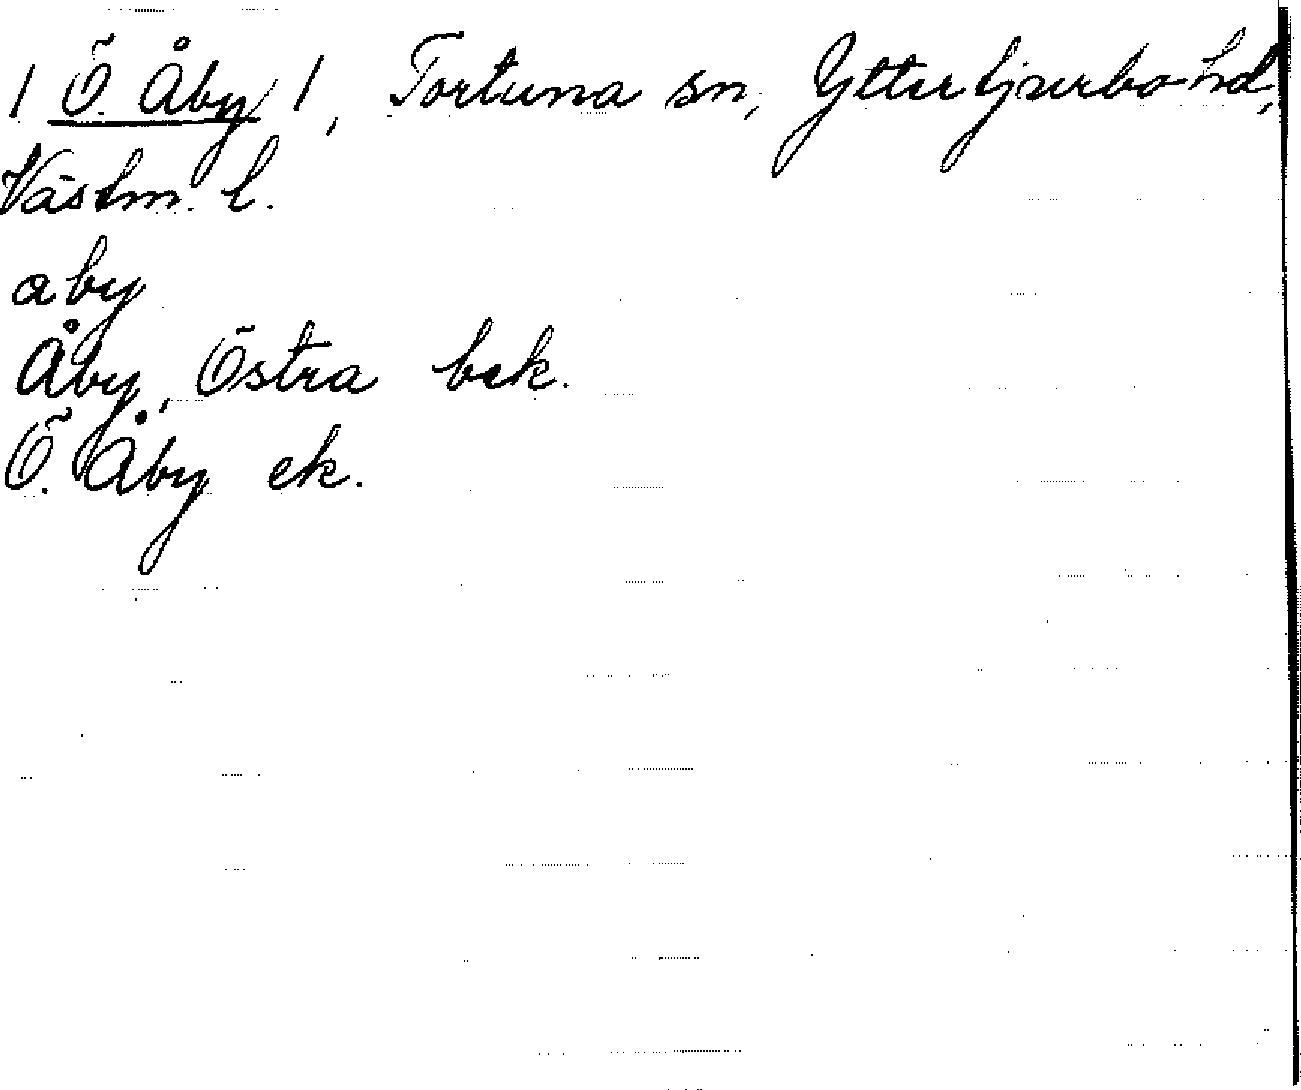 / Ö. Åby /, Tortuna sn, Yttertjurbo hd,
Västm. l.
aby
Åby, Östra bek.
Ö. Åby ek.